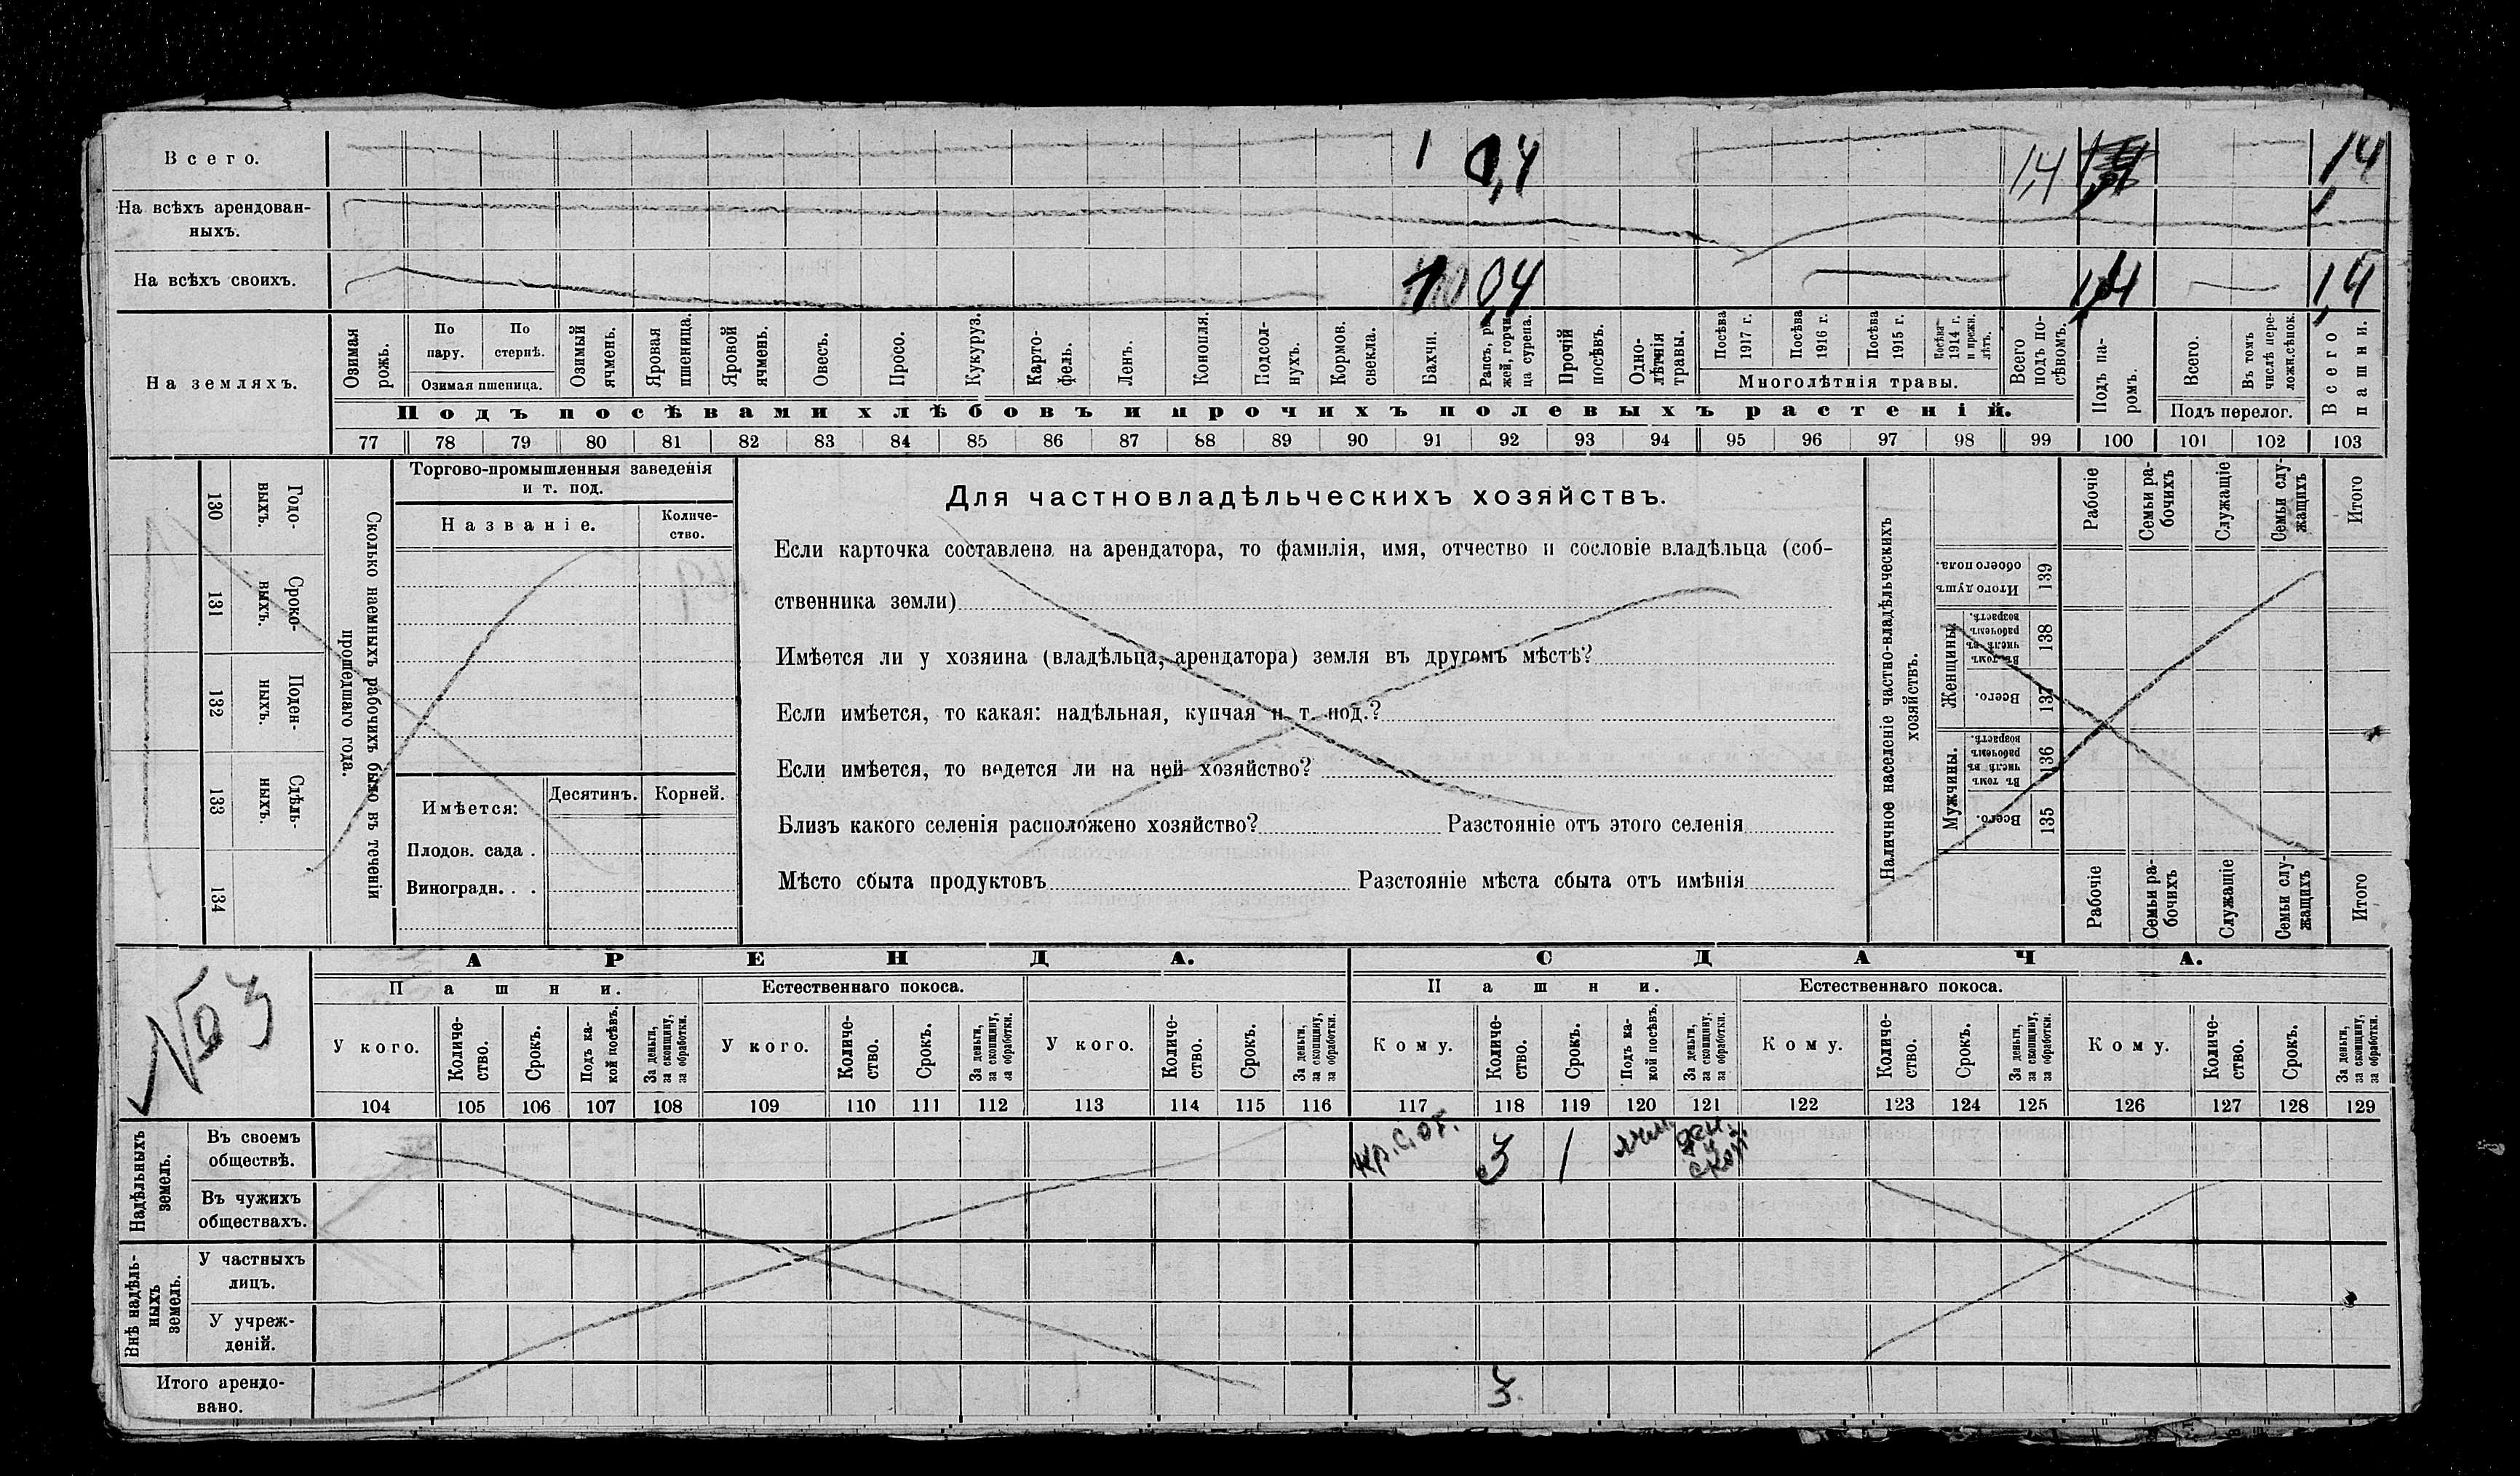 Всего. 1 0,4 1,4 1,4
На всѣхъ арендован-
ныхъ.
На всѣхъ своихъ. 1 0,4 1,4 1,4
На земляхъ.
Озимая рожь.
По пару.
По стернѣ.
Озимая пшеница.
Озимый ячмень.
Яровая пшеница.
Яровой ячмень.
Овесъ.
Просо.
Кукуруз.
Карто-
фель.
Ленъ.
Конопля.
Подсол-
нухъ.
Кормов.
свекла.
Бахчи.
Рапсъ, ры
жей, горчи
ца сурепа.
Прочій посѣвъ.
Одно-
лѣтнія
травы.
Посѣва 1917 г.
Посѣва 1916 г.
Посѣва 1915 г.
Посѣва 1914 г. и прежн. лѣтъ.
Многолѣтнія травы.
Всего подъ по-
сѣвомъ.
Подъ па-
ромъ.
Всего.
Въ томъ числѣ пере-
лож.сѣнок.
Подъ перелог.
Всего пашни.
Подъ посѣвами хлѣбовъ и прочихъ полевыхъ растеній.
77 78 79 80 81 82 83 84 85 86 87 88 89 90 91 92 93 94 95 96 97 98 99 100 101 102 103
130 Годо-
выхъ.
131 Сроко-
выхъ.
132 Поден-
ныхъ.
133 Сдѣль-
ныхъ.
134
Сколько наемныхъ рабочихъ было въ теченіи
прошедшаго года.
Торгово-промышленныя заведенія
и т. под.
Названіе.
Количе-
ство.
Имѣется: Десятинъ. Корней.
Плодов. сада .
Виноградн. . .
Для частновладѣльческихъ хозяйствъ.
Если карточка составлена на арендатора, то фамилія, имя, отчество и сословіе владѣльца (соб-
ственника земли)
Имѣется ли у хозяина (владѣльца, арендатора) земля въ другомъ мѣстѣ?
Если имѣется, то какая: надѣльная, купчая и т. под.?
Если имѣется, то ведется ли на ней хозяйство?
Близъ какого селенія расположено хозяйство? Разстояніе отъ этого селенія
Мѣсто сбыта продуктовъ Разстояніе мѣста сбыта отъ имѣнія
Наличное населеніе частно-владѣльческихъ
хозяйствъ.
Рабочіе
Семьи ра-
бочихъ
Служащіе
Семьи слу-
жащихъ
Итого
Итого душъ
обоего пола. 139
Женщины.
Въ томъ числѣ въ рабочемъ возрастѣ. 138
Всего. 137
Мужчины.
Въ томъ числѣ въ рабочемъ возрастѣ. 136
Всего. 135
Рабочіе
Семьи ра-
бочихъ
Служащіе
Семьи слу-
жащихъ
Итого
№ 3
АРЕНДА. СДАЧА.
Пашни. Естественнаго покоса. Пашни. Естественнаго покоса.
У кого.
Количе-
ство.
Срокъ.
Подъ ка-
кой посѣвъ.
За деньги,
за скопщину,
за обработки.
У кого.
Количе-
ство.
Срокъ.
За деньги,
за скопщину,
за обработки.
У кого.
Количе-
ство.
Срокъ.
За деньги,
за скопщину,
за обработки.
Кому.
Количе-
ство.
Срокъ.
Подъ ка-
кой посѣвъ.
За деньги,
за скопщину,
за обработки.
Кому.
Количе-
ство.
Срокъ.
За деньги,
за скопщину,
за обработки.
Кому.
Количе-
ство.
Срокъ.
За деньги,
за скопщину,
за обработки.
104 105 106 107 108 109 110 111 112 113 114 115 116 117 118 119 120 121 122 123 124 125 126 127 128 129
Надѣльныхъ
земель.
Въ своемъ
обществѣ. кр. с. об. 3 1 ячм. ден. и скоп.
Въ чужихъ
обществахъ.
Внѣ надѣль-
ныхъ
земель.
У частныхъ
лицъ.
У учреж-
деній.
Итого арендо-
вано. 3.